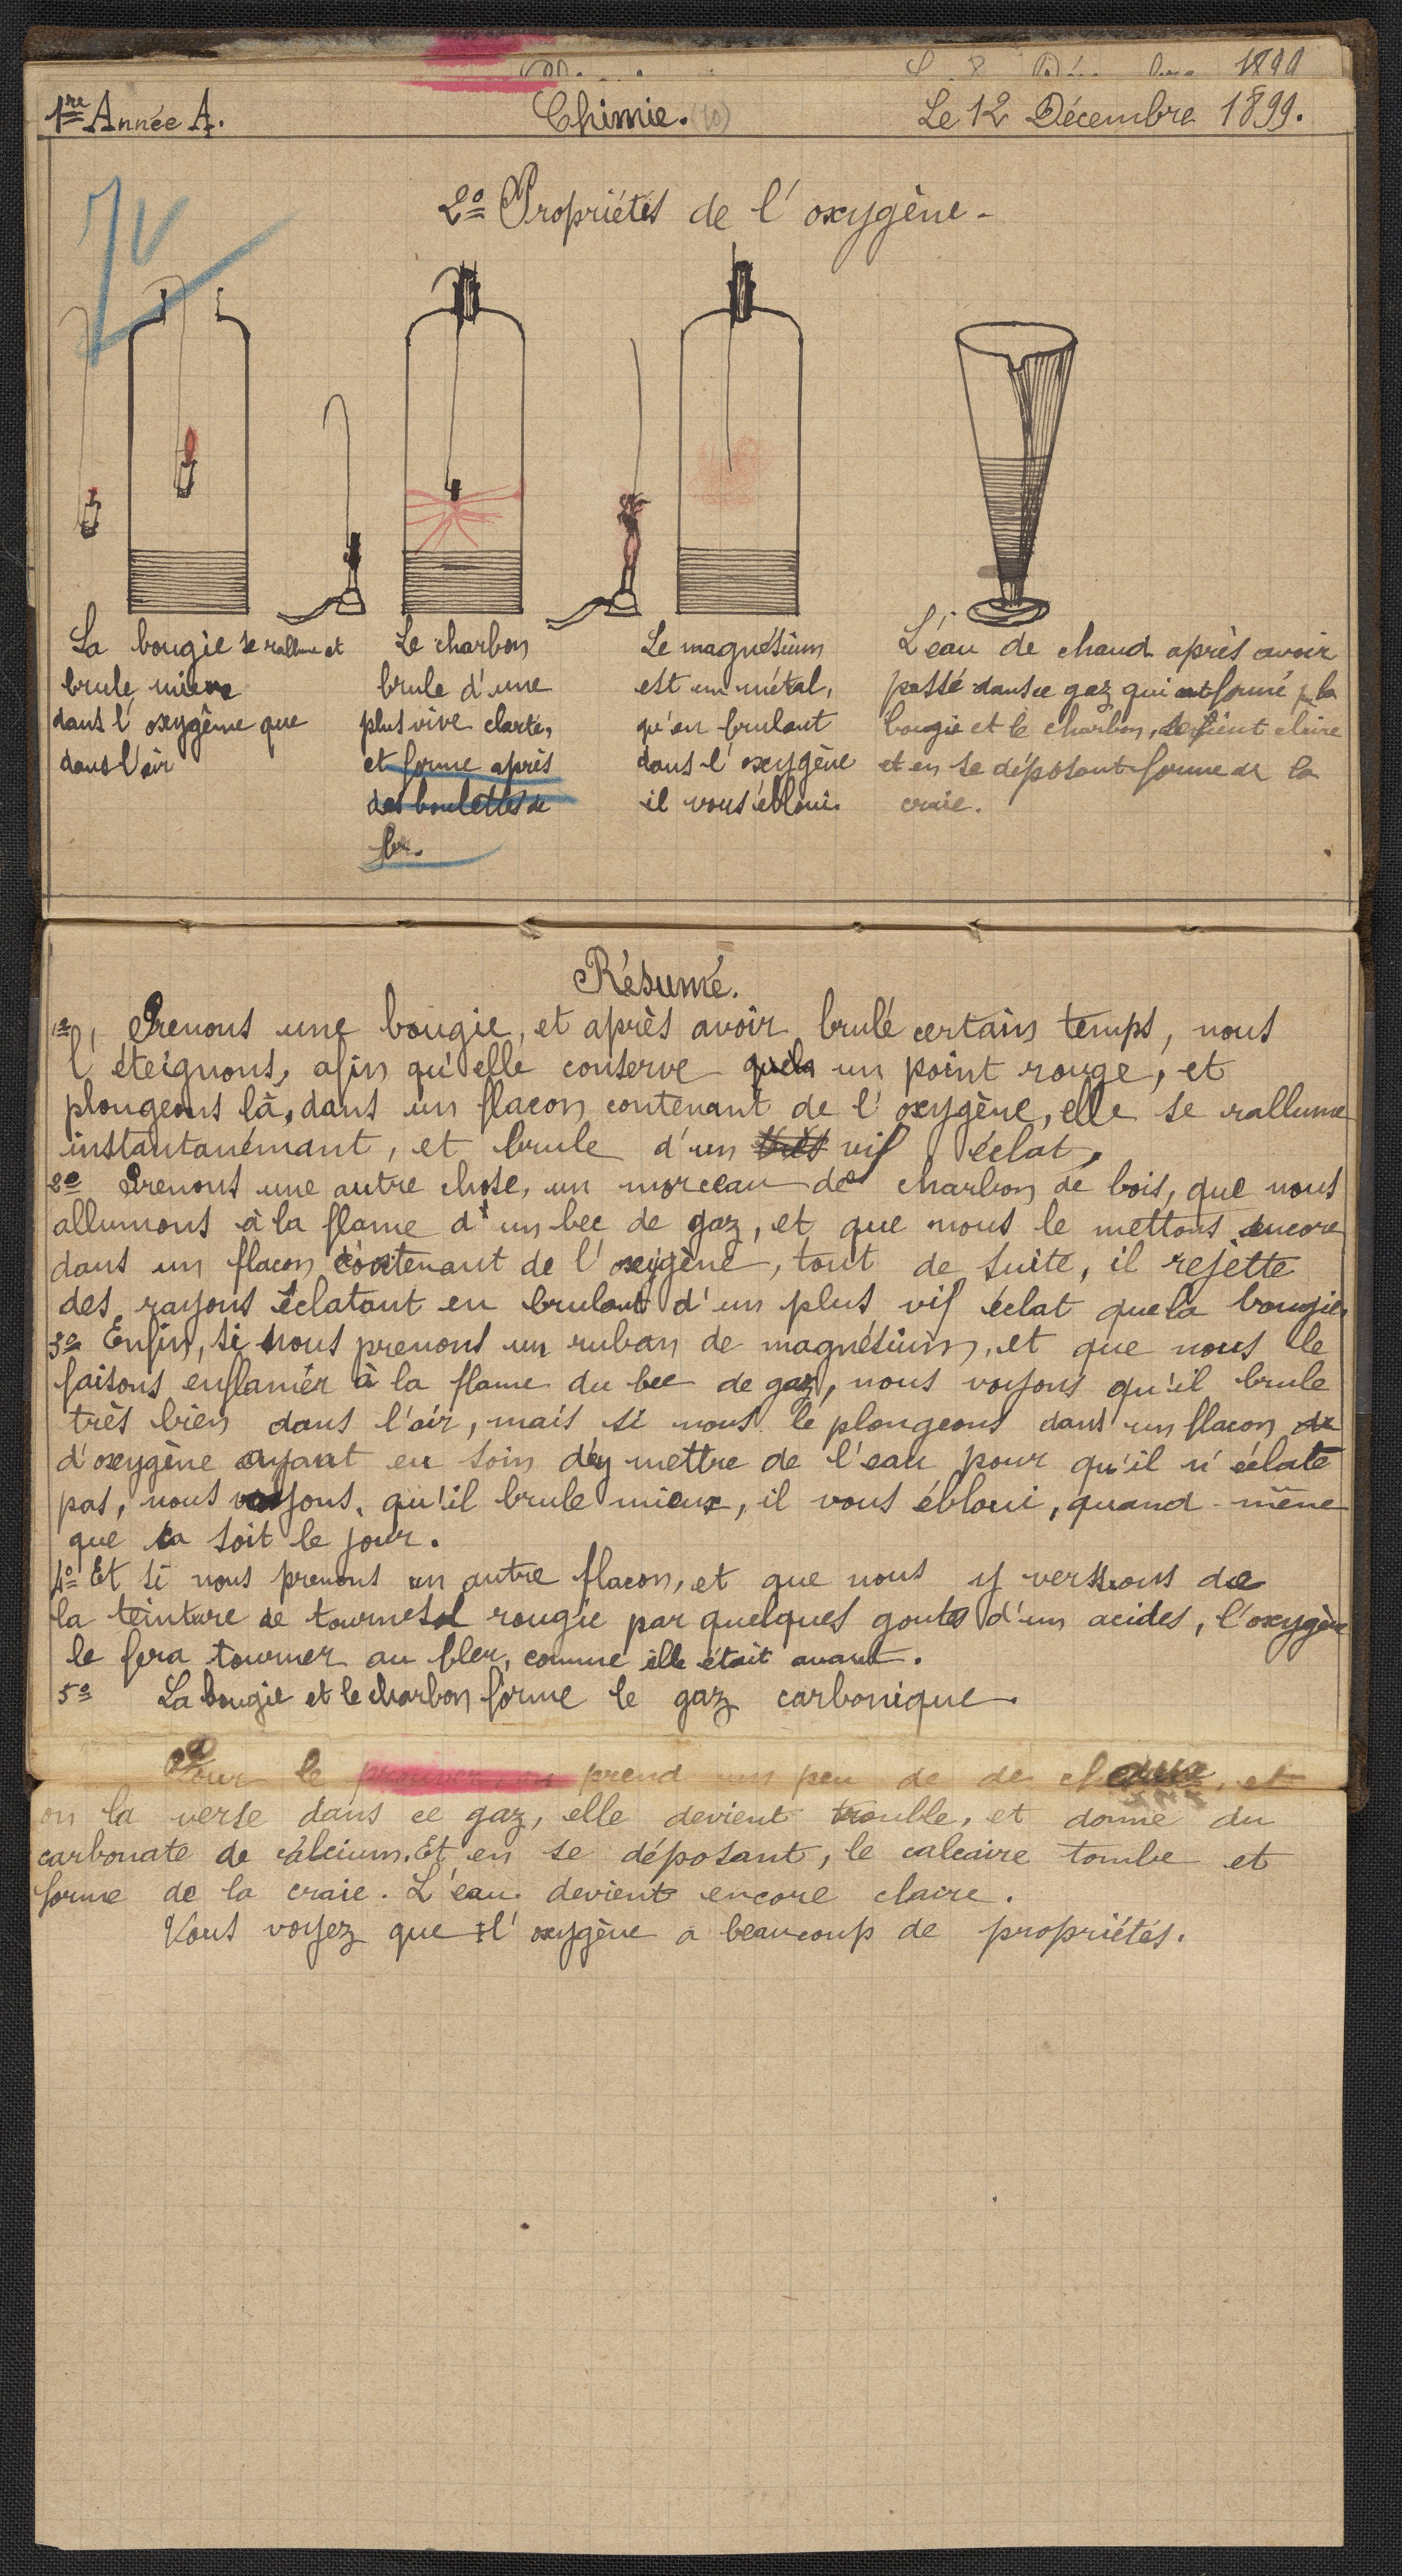 1899
1re Année A.
Chimie. (10)
Le 12 Décembre 1899.
2o Propriétés de l'oxygène-
La bougie se rallume et
brule mieux
dans l'oxygène que
dans l'air
Le charbon
brule d'une
plus vive clarté,
et forme après
des boulettes de
fer.
Le magnésium
est un métal,
qu'en brulant
dans l'oxygène
il vous éblouie.
L'eau de chaud après avoir
passé dans ce gaz qui est formé p. la
bougie et le charbon, devient claire
et en se déposant forme de la
craie.
Résumé.
1o, Prenons une bougie, et après avoir brulé certain temps, nous
l'éteignons, afin qu'elle conserve un point rouge, et
plongeons là, dans un flacon contenant de l'oxygène, elle se rallume
instantanémant, et brule d'un très vif éclat.
2o Prenons une autre chose, un morceau de charbon de bois, que nous
allumons à la flame d'un bec de gaz, et que nous le mettons encore
dans un flacon contenant de l'oxigène, tout de suite, il rejette
des rayons éclatant en brulant d'un plus vif éclat que la bougie.
3o Enfin, si nous prenons un ruban de magnésium, et que nous le
faisons enflamér à la flame du bec de gaz, nous voyons qu'il brule
très bien dans l'air, mais si nous le plongeons dans un flacon de
d'oxygène ayant eu soin d'ey mettre de l'eau pour qu'il n'éclate
pas, nous voyons, qu'il brule mieux, il vous ébloui, quand-même
que ça soit le jour.
4o Et si nous prenons un autre flacon, et que nous y verssons de
la teinture de tournesol rougie par quelques goutes d'un acides, l'oxygène
le fera tourner au bleu, comme elle était avant.
5o La bougie et le charbon forme le gaz carbonique.
Pour le prouver, on prend un peu de de chaux, et
on la verse dans ce gaz, elle devient trouble, et donne du
carbonate de calcium. Et en se déposant, le calcaire tombe et
forme de la craie. L'eau devient encore claire.
Vous voyez que l'oxygène a beaucoup de propriétés.